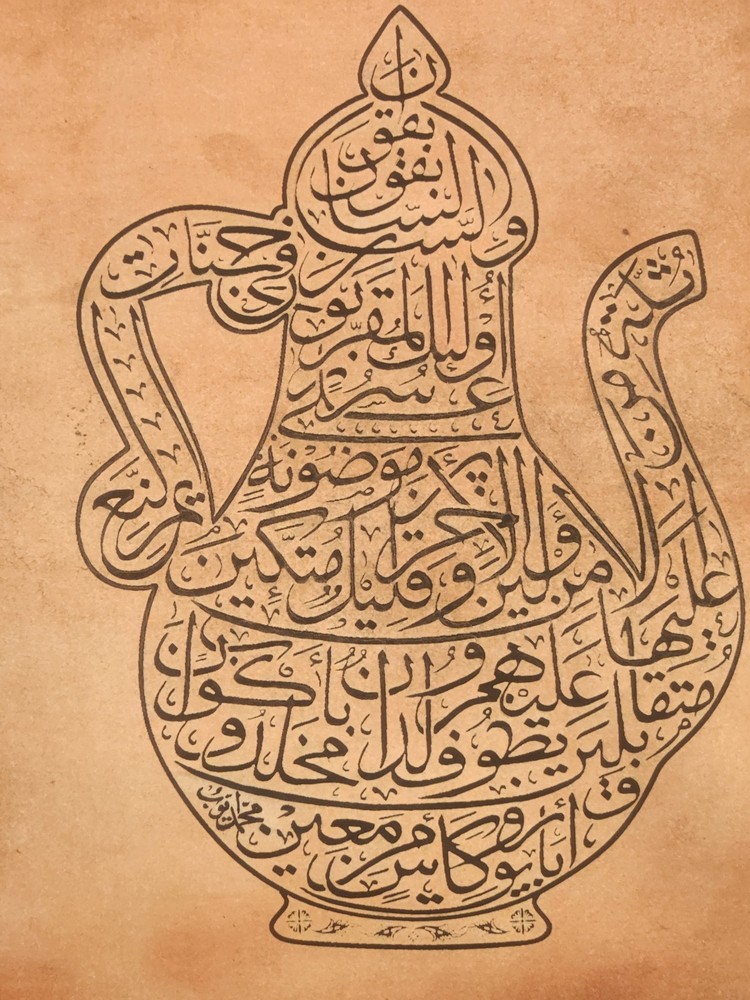 والسابقون السابقون
أولئك المقربون
في جنات
النعيم
ثلة من
الأولين وقليل من الآخرين
على سرر
موضونة
متكئين
عليها
متقابلين
يطوف عليهم ولدان مخلدون
بأكواب
وأباريق وكأس من معين